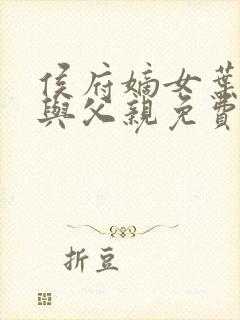 侯府嫡女葉
與父親免費
折豆